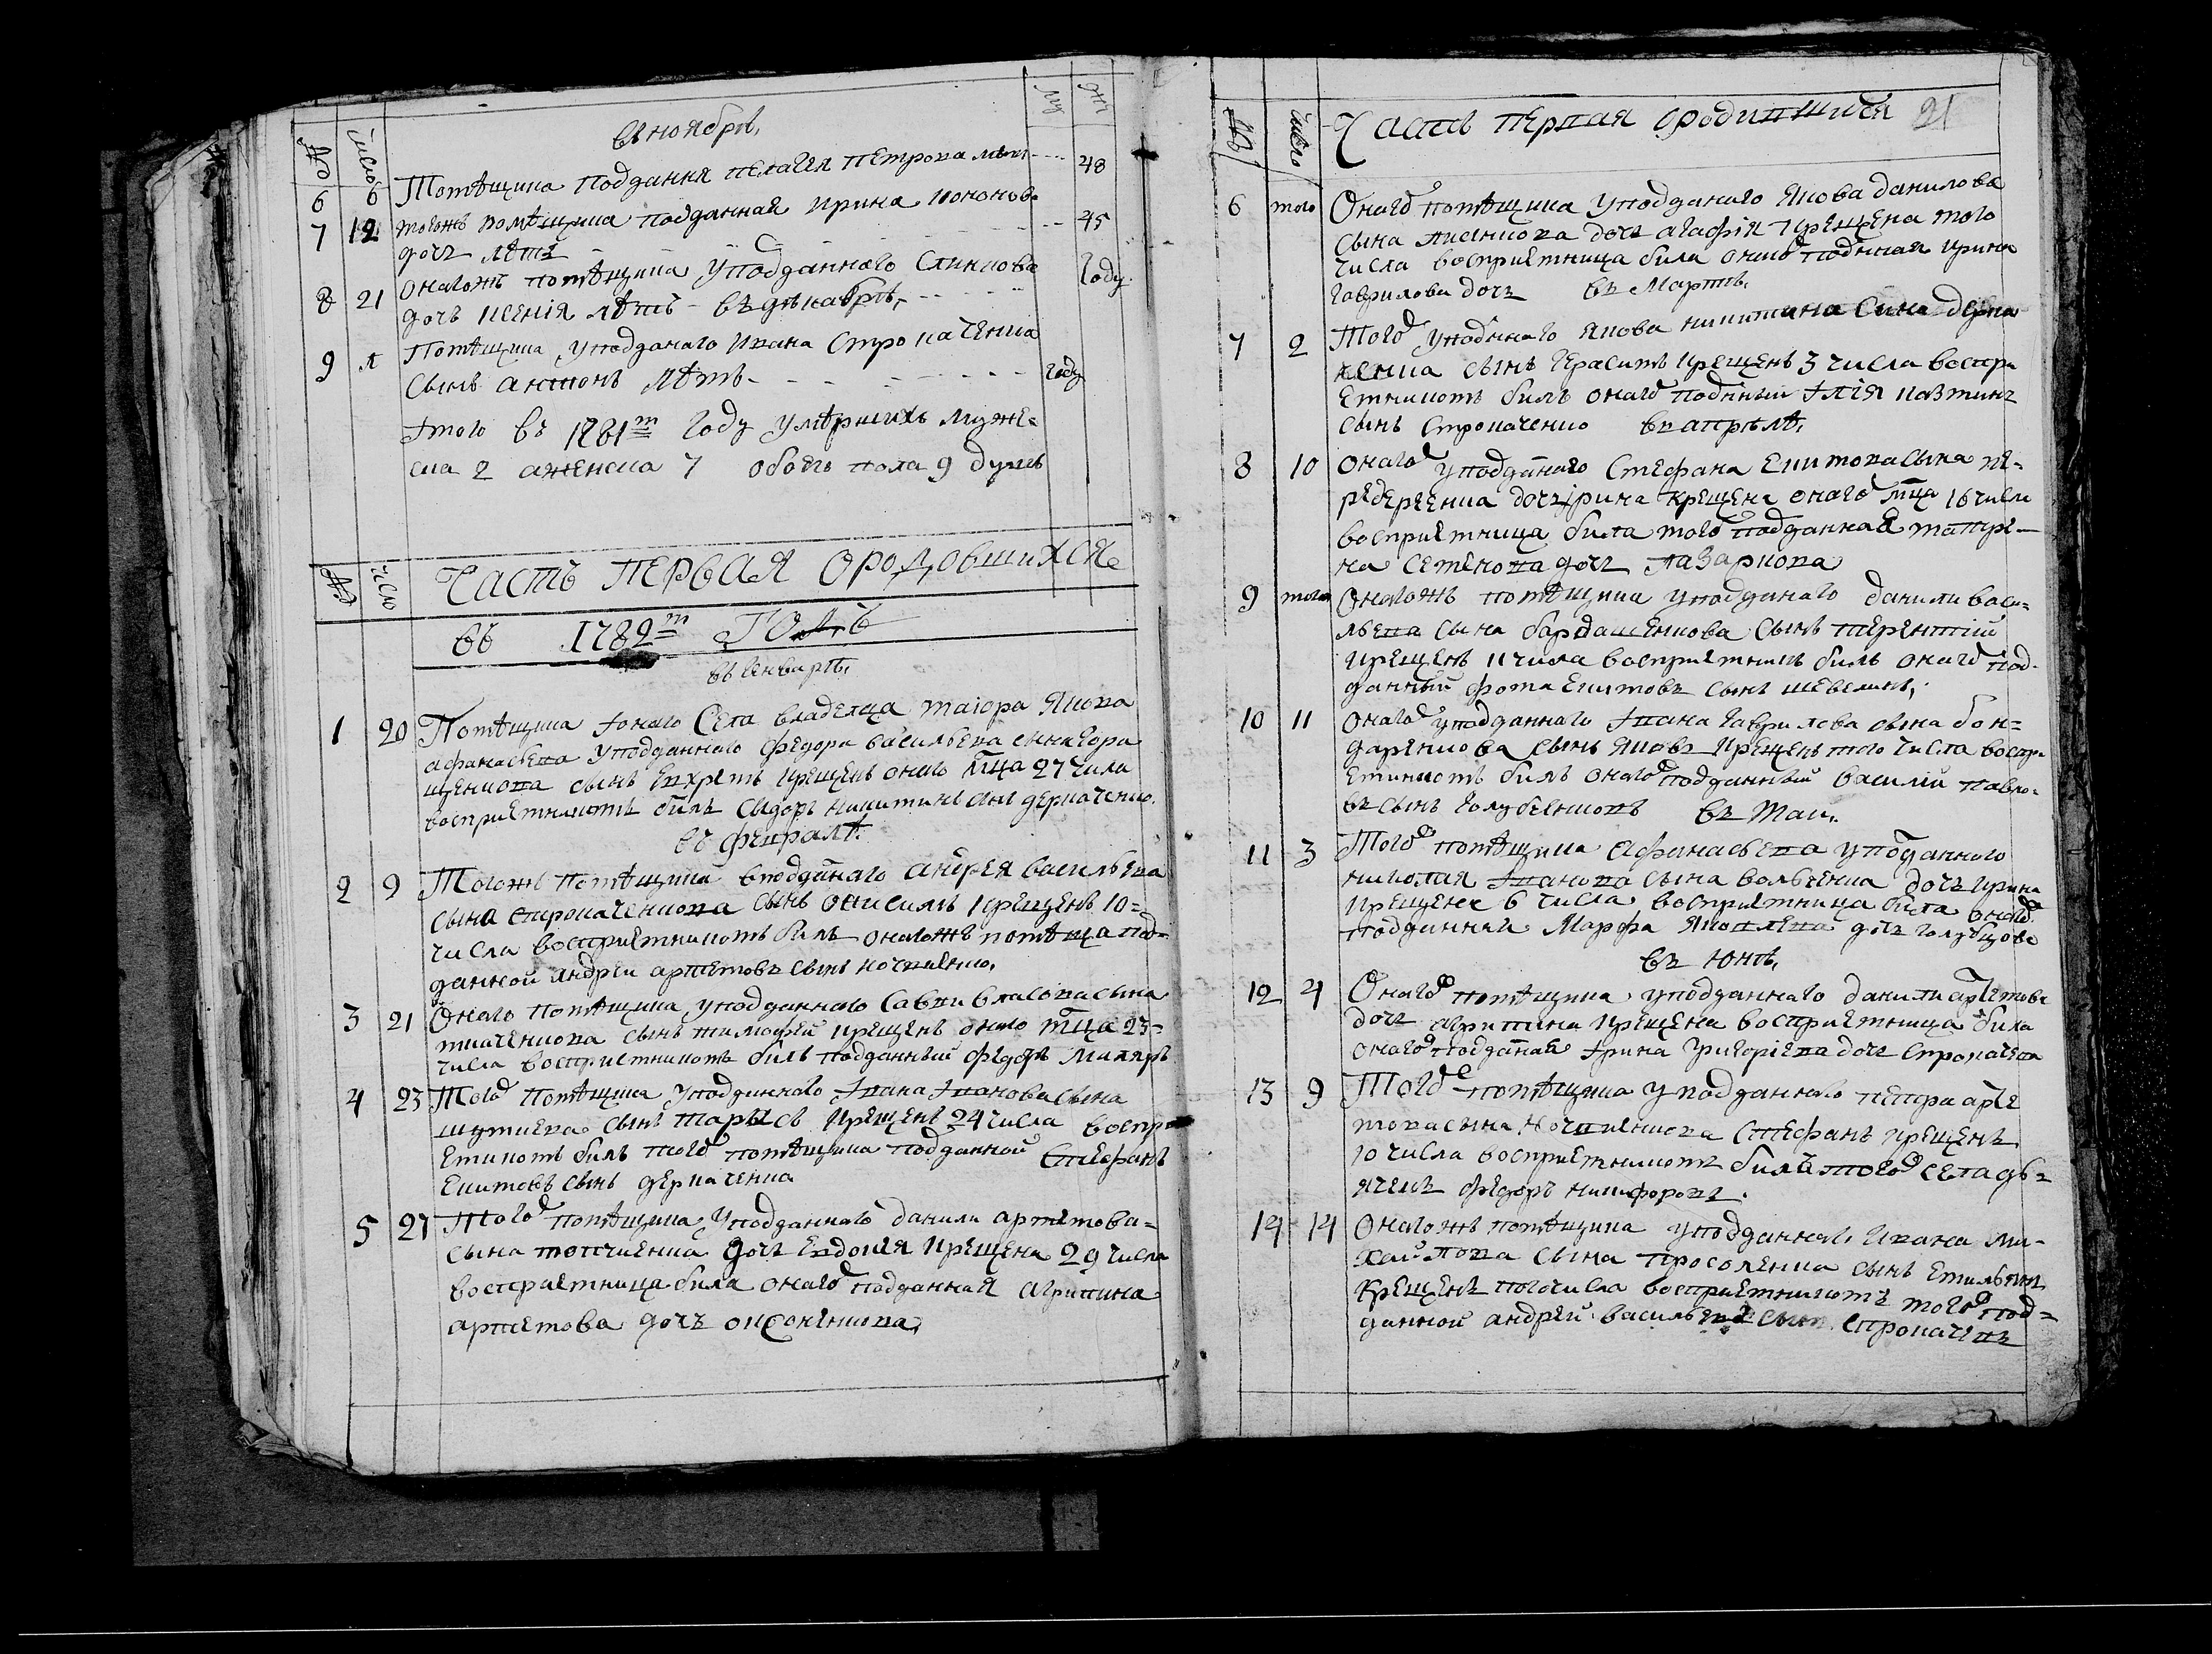 № число въ ноябрѣ, му жн
6 6 Помѣщика поддання пелагея петрова лѣтъ 48
7 12 тогожъ помѣщика подданная ирина кононова
дочь лѣтъ 45
8 21 оногожъ помѣщика уподданного
дочь ксенія лѣтъ – въ декабрѣ, году
9 л Помѣщика уподданаго ивана строкаченка
сынъ антонъ лѣтъ году
Iтого въ 1781м году умѣршихъ муже=
ска 2 аженска 7 обоего пола 9 душъ
№ число Часть первая ородовшихся
въ 1782м годѣ
въ енварѣ,
1 20 Помѣщика Iоного села владелца маіора якова
афанасьева уподданного федора васильева сына
сынъ крещенъ оного мца 27 числа
восприемникомъ билъ сидоръ никитинъ снъ деркаченко.
въ февралѣ.
2 9 Тогожъ помѣщика вподданаго андрея васильева
сына строкаченкова сынъ онисимъ крещенъ 10=
числа восприемникомъ билъ оногожъ помѣща под=
данной андреи артемовъ сынъ
3 21 Оного помѣщика уподданного савки власова сына
ткаченкова сынъ тимофей крещенъ оного мца 23=
числа восприемникомъ билъ подданный федоръ
4 23 Того помѣщика уподданного Iвана Iванова сына
сынъ тарасъ крещенъ 24 числа воспри
емникомъ билъ того помѣщика подданной стефанъ
екимовъ сынъ деркаченка
5 27 Того помѣщика уподданного данили артемова=
сына дочь евдокея крещена 29 числа
восприемница била оного подданная агрипина
артемова дочь
№ число Часть первая ородившися 21
6 того Оного помѣщика уподданаго якова данилова
сына дочь агафія крещена того
числа восприемница била оного поднная ирина
гаврилова дочь въ мартѣ,
7 2 Того уподнного якова никитина сина дерка
ченка сынъ герасимъ крещенъ 3 числа воспри
емникомъ билъ оного поднный Iлія
сынъ строкаченко въ апрѣлѣ,
8 10 оного уподданого стефана екимова сына
дочь Iрина крещена оного мца 16 числа
восприемница била того подданная матре–
на семенова дочь лазаркова
9 того Оногожъ помѣщика уподданаго данили васи=
льева сына бардашенкова сынъ терентій
крещенъ 11 числа восприемникъ билъ оного под-
данный фома екимовъ сынъ шевелинъ,
10 11 оного уподданного Iвана гаврилова сына бон=
даренкова сынъ яковъ крещенъ того числа воспри
емникомъ билъ оного подданный василій павло=
въ сынъ голубенковъ въ маи.
11 3 Того помѣщика афанасьева уподданого
николая Iванова сына дочь ирина
крещена 6 числа восприемница била оного
подданная марфа яковлева дочь голубцова
въ юнѣ,
12 4 Оного помѣщика уподданного данили артемова
дочь агрипина крещена восприемница била
оного подданая Iрина григоріева дочь строкачева
13 9 Того помѣщика уподданного петра арте
мова сына стефанъ крещенъ
10 числа восприемникомъ билъ того села дь=
ячекъ федоръ никифоровъ.
14 14 Оногожъ помѣщика уподданнаго ивана ми-
хайлова сына просоленка сынъ емильянъ
крещенъ того числа восприемникомъ того под=
данной андрей васильевъ сынъ строкачевъ